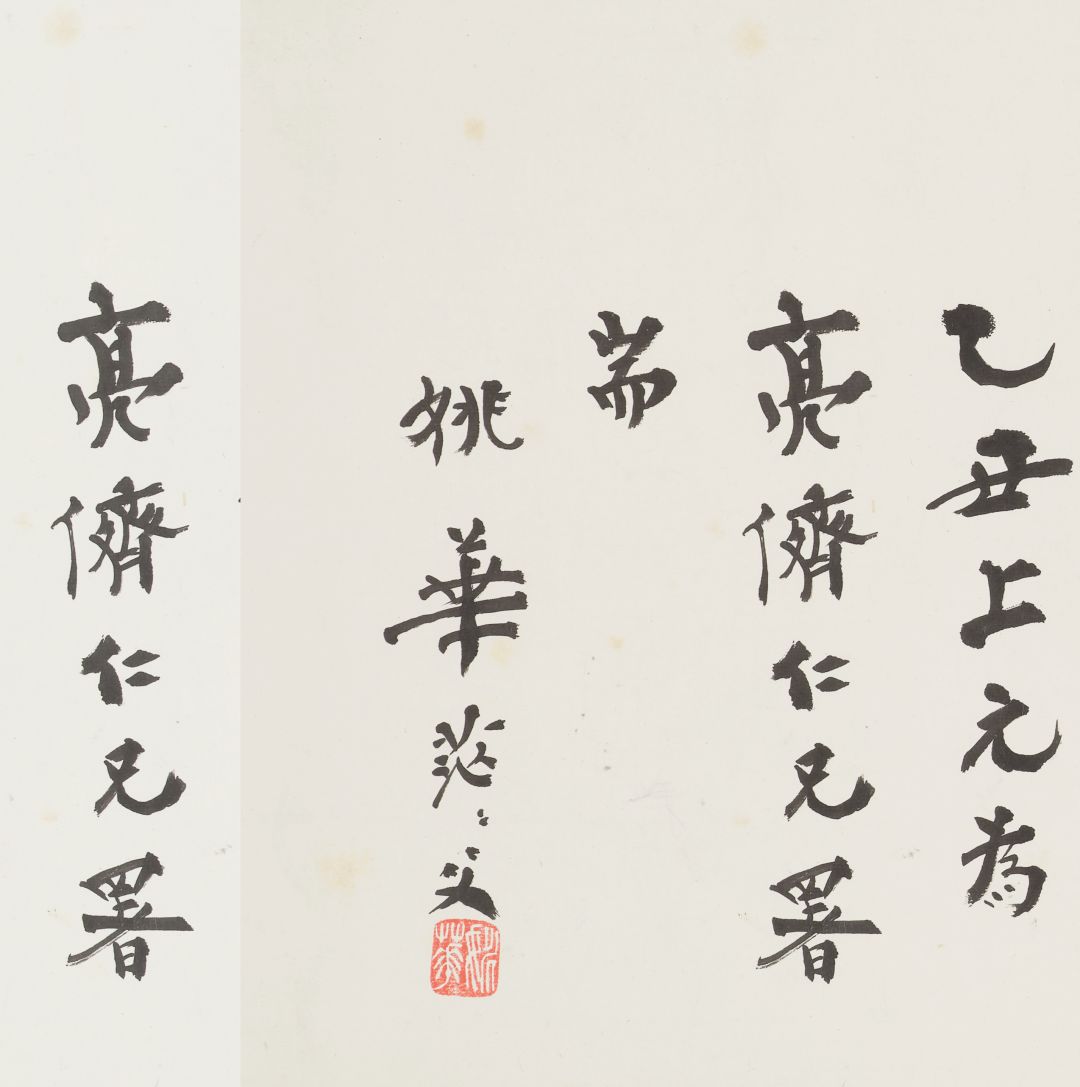 乙丑上元為
亮儕仁兄署
耑
姚華茫茫父
姚華
亮儕仁兄署